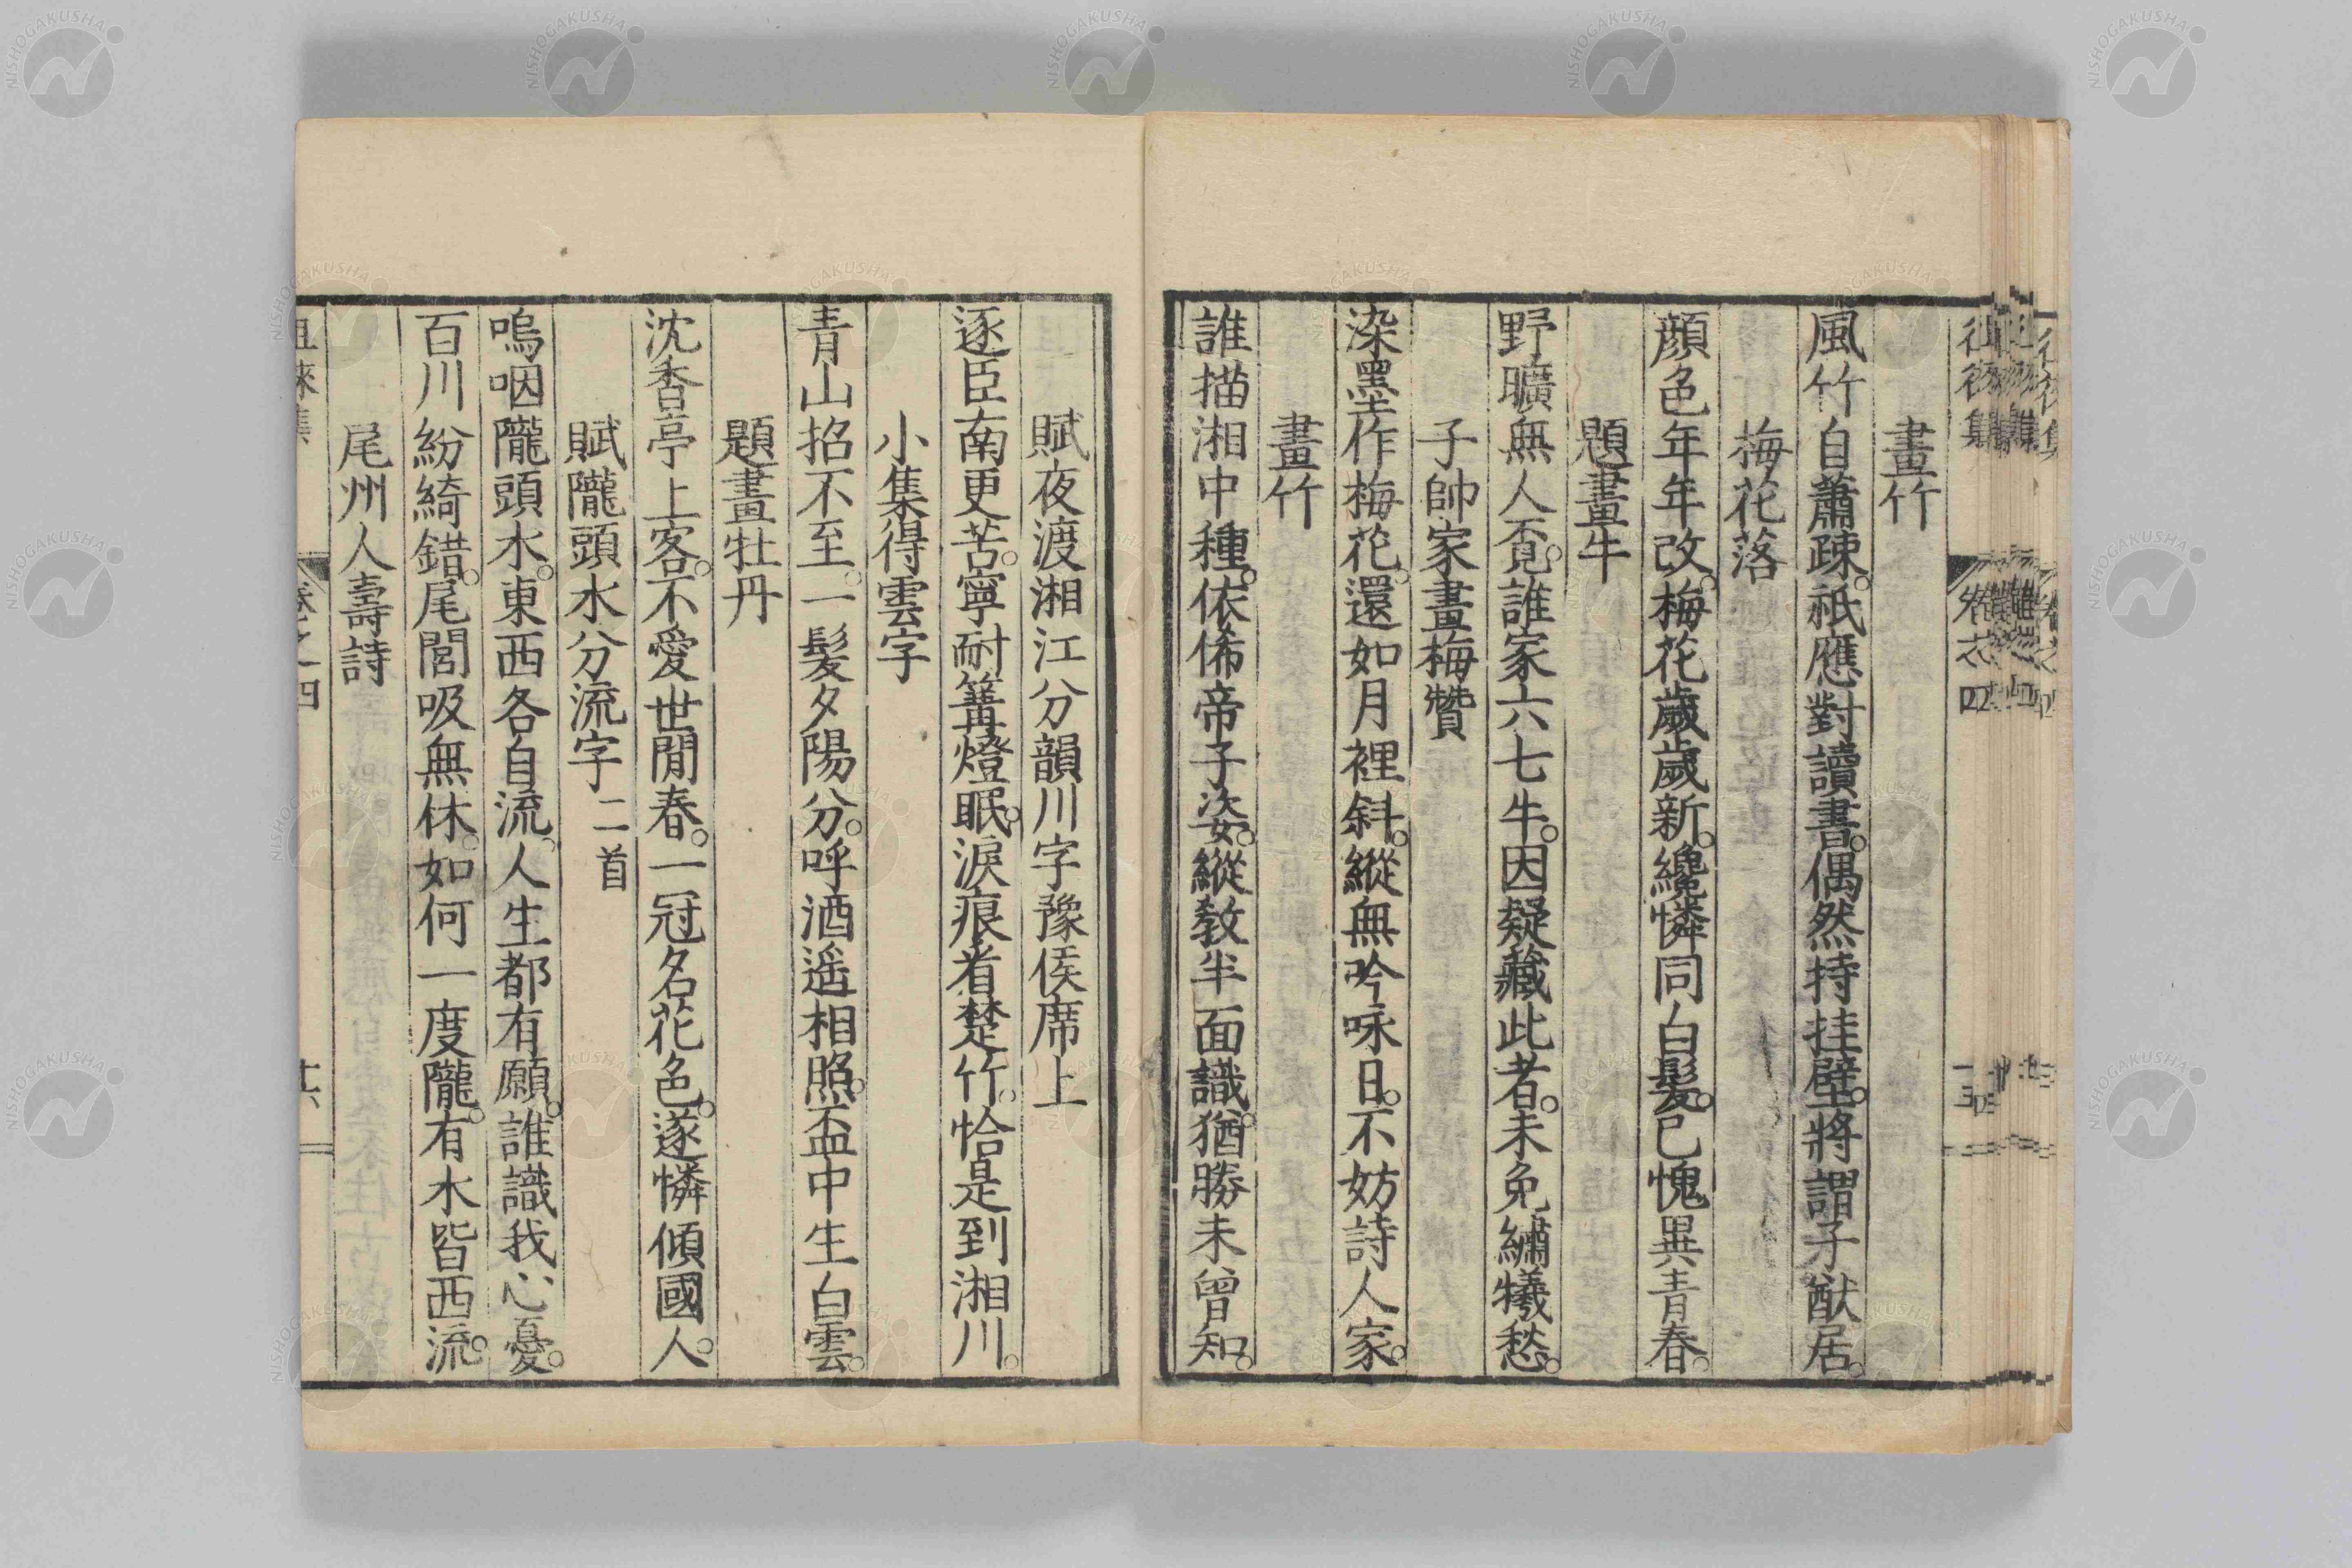 畫竹
風竹自蕭疎。祇應對讀書。偶然持挂壁。將謂子猷居。
梅花落
顏色年年改。梅花歲歲新。纔憐同白髮。已愧異青春。
題畫牛
野曠無人覓。誰家六七牛。因疑藏此者。未免繡犧愁。
子帥家畫梅贊
染墨作梅花。還如月裡斜。縱無吟咏日。不妨詩人家。
畫竹
誰描湘中種。依俙帝子姿。縱教半面識。猶勝未曾知。
賦夜渡湘江分韻川字豫侯席上
逐臣南更苦。寧耐篝燈眠。淚痕看楚竹。恰是到湘川。
小集得雲字
青山招不至。一髮夕陽分。呼酒遥相照。盃中生白雲。
題畫牡丹
沈香亭上客。不愛世閒春。一冠名花色。遂憐傾國人。
賦隴頭水分流字二首
嗚咽隴頭水。東西各自流。人生都有願。誰識我心憂。
百川紛綺錯。尾閭吸無休。如何一度隴。有水皆西流。
尾州人壽詩
徂徠集 卷之四 十六
NISHOGAKUSHA